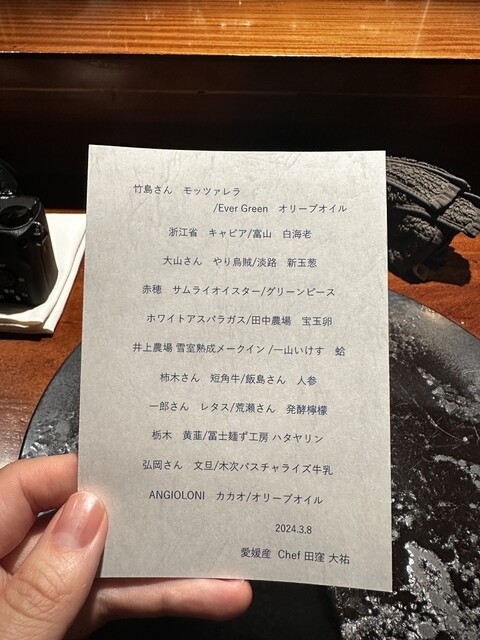 竹島さん　モッツァレラ
/Ever Green　オリーブオイル
浙江省　キャビア/富山　白海老
大山さん　やり烏賊/淡路　新玉葱
赤穂　サムライオイスター/グリーンピース
ホワイトアスパラガス/田中農場　宝玉卵
井上農場 雪室熟成メークイン /一山いけす　蛤
柿木さん　短角牛/飯島さん　人参
一郎さん　レタス/荒瀬さん　発酵檸檬
栃木　黄韮/冨士麺ず工房 ハタヤリン
弘岡さん　文旦/木次パスチャライズ牛乳
ANGIOLONI　カカオ/オリーブオイル
2024.3.8
愛媛産　Chef 田窪 大祐